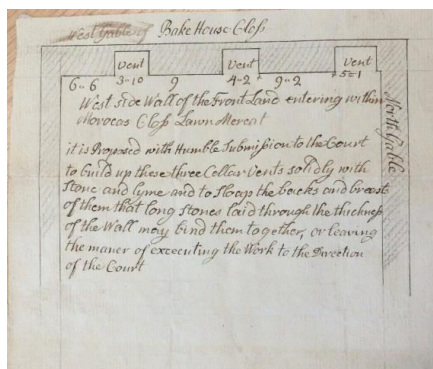 West Gable of Bake House Closs
Vent Vent Vent
6-6 3-10 9 4-2 9-2 5-1
West side Wall of the Front Land entering within
Morocas Closs Lawn Mercat
North Gable
it is Proposed with Humble Submission to the Court
to build up these three Cellar Vents solidly with
Stone and lyme and to Sloap the backs and breast
of them that long Stones laid through the thickness
of the Wall may bind them together, or leaving
the maner of executing the Work to the Direction
of the Court